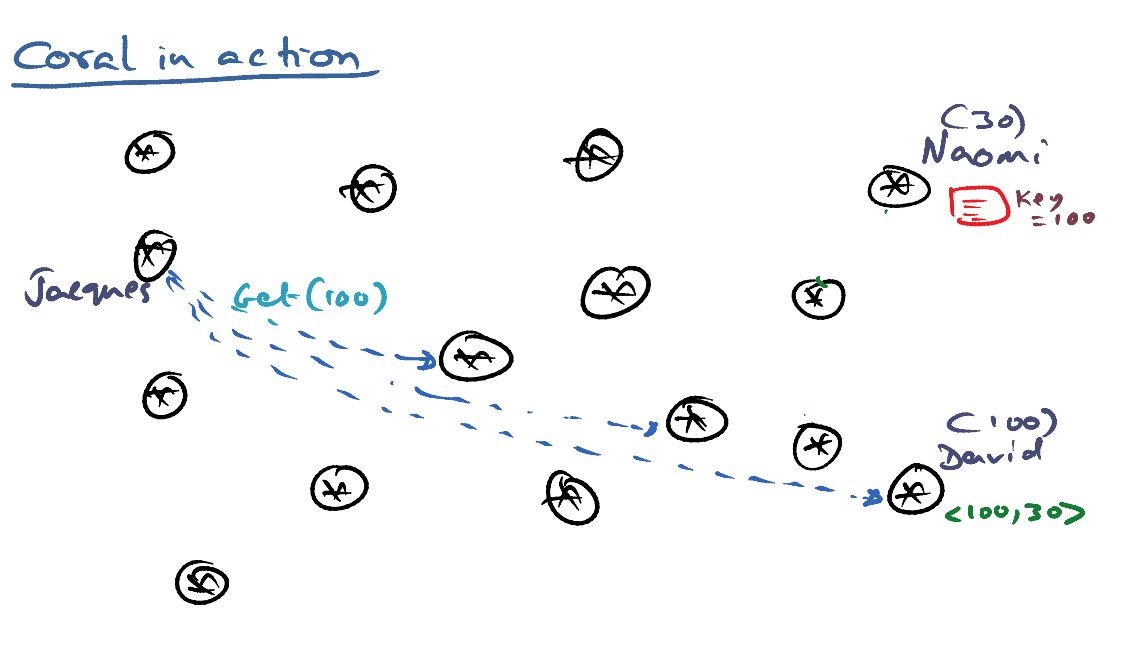 Coral in action
(30)
Naomi
Key
=100
Jacques
Get(100)
(100)
David
<100,30>